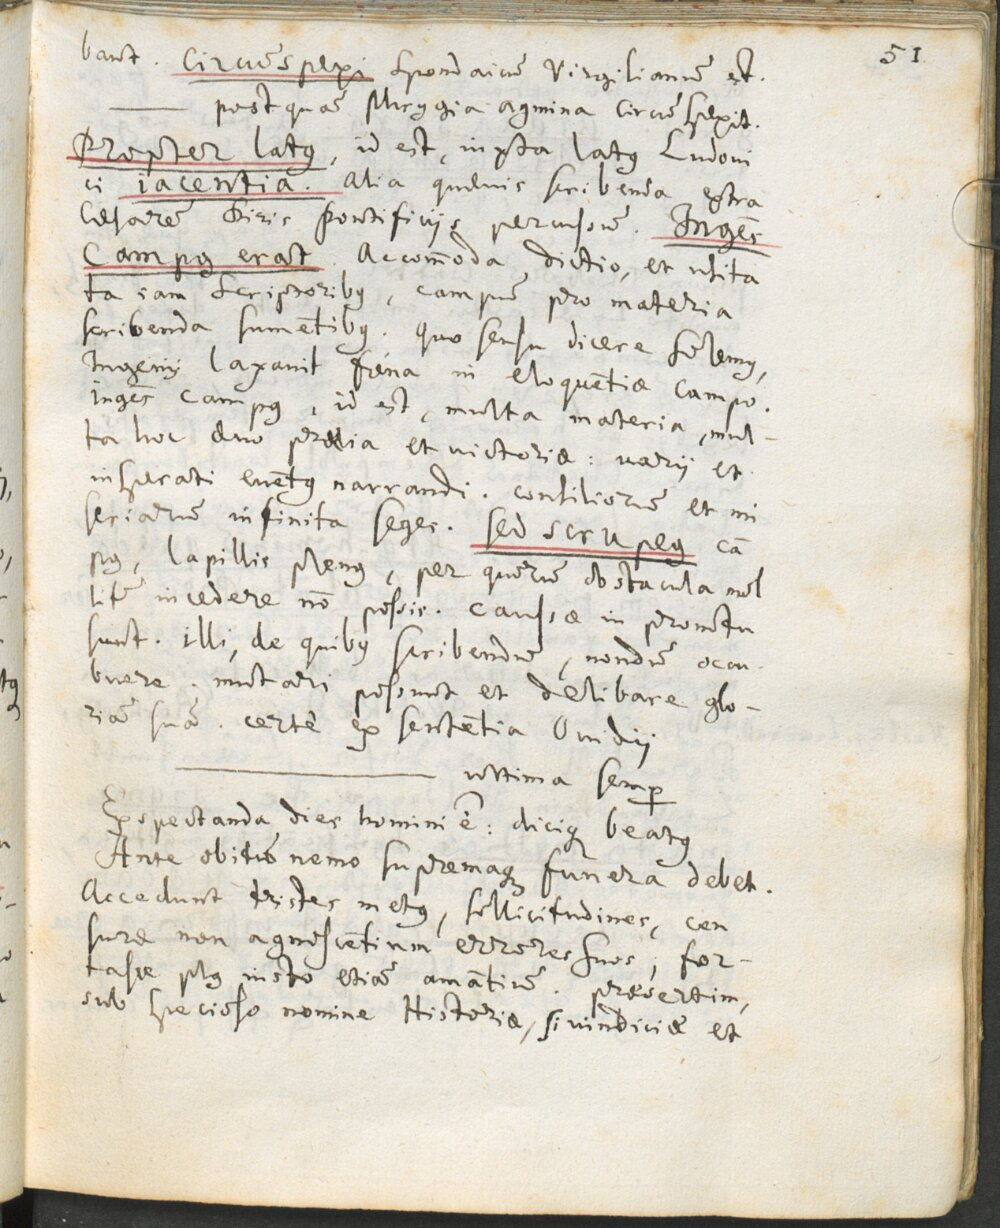 51
bant. Circūspexi Spondaicū Virgilianū est.
postquā Phrygia agmina circūspexit.
Propter latꝰ, id est, iuxta latꝰ Ludoui
ci iacentia. Alia quæuis scribenda extra
Cæsarē Diris Pontificijs percussū. Ingēs
Campꝰ erat. Accom̄oda dictio, et usita
ta iam Scriptoribꝰ, campū pro materia
scribenda sumētibꝰ. quo sensu dicere solemꝰ,
Ingenij laxauit fræna in eloquētiæ campo.
Ingēs campꝰ, id est, multa materia, mul-
ta hoc æuo prælia et victoriæ: varij et
insperati euētꝰ narrandi. consiliorū et mi
seriarū infinita seges. sed scrupeꝰ cā
pꝰ, lapillis plenꝰ, per quorū obstacula mol
litē incedere nō possis. Caussæ in promtu
sunt. illi, de quibꝰ scribendū, nondū occu-
buere. mutari possunt et delibare glo-
riā suā. certè ex sentētia Ouidij
ultima semꝑ
Expectanda dies homini ē: diciqꝫ beatꝰ
Ante obitū nemo supremaqꝫ funera debet.
Accedunt tristes metꝰ, sollicitudines, cen
suræ non agnoscētium errores suos, for-
tasse plꝰ iusto etiā amātiū. præsertim,
sub specioso nomine Historiæ, si vindiciæ et